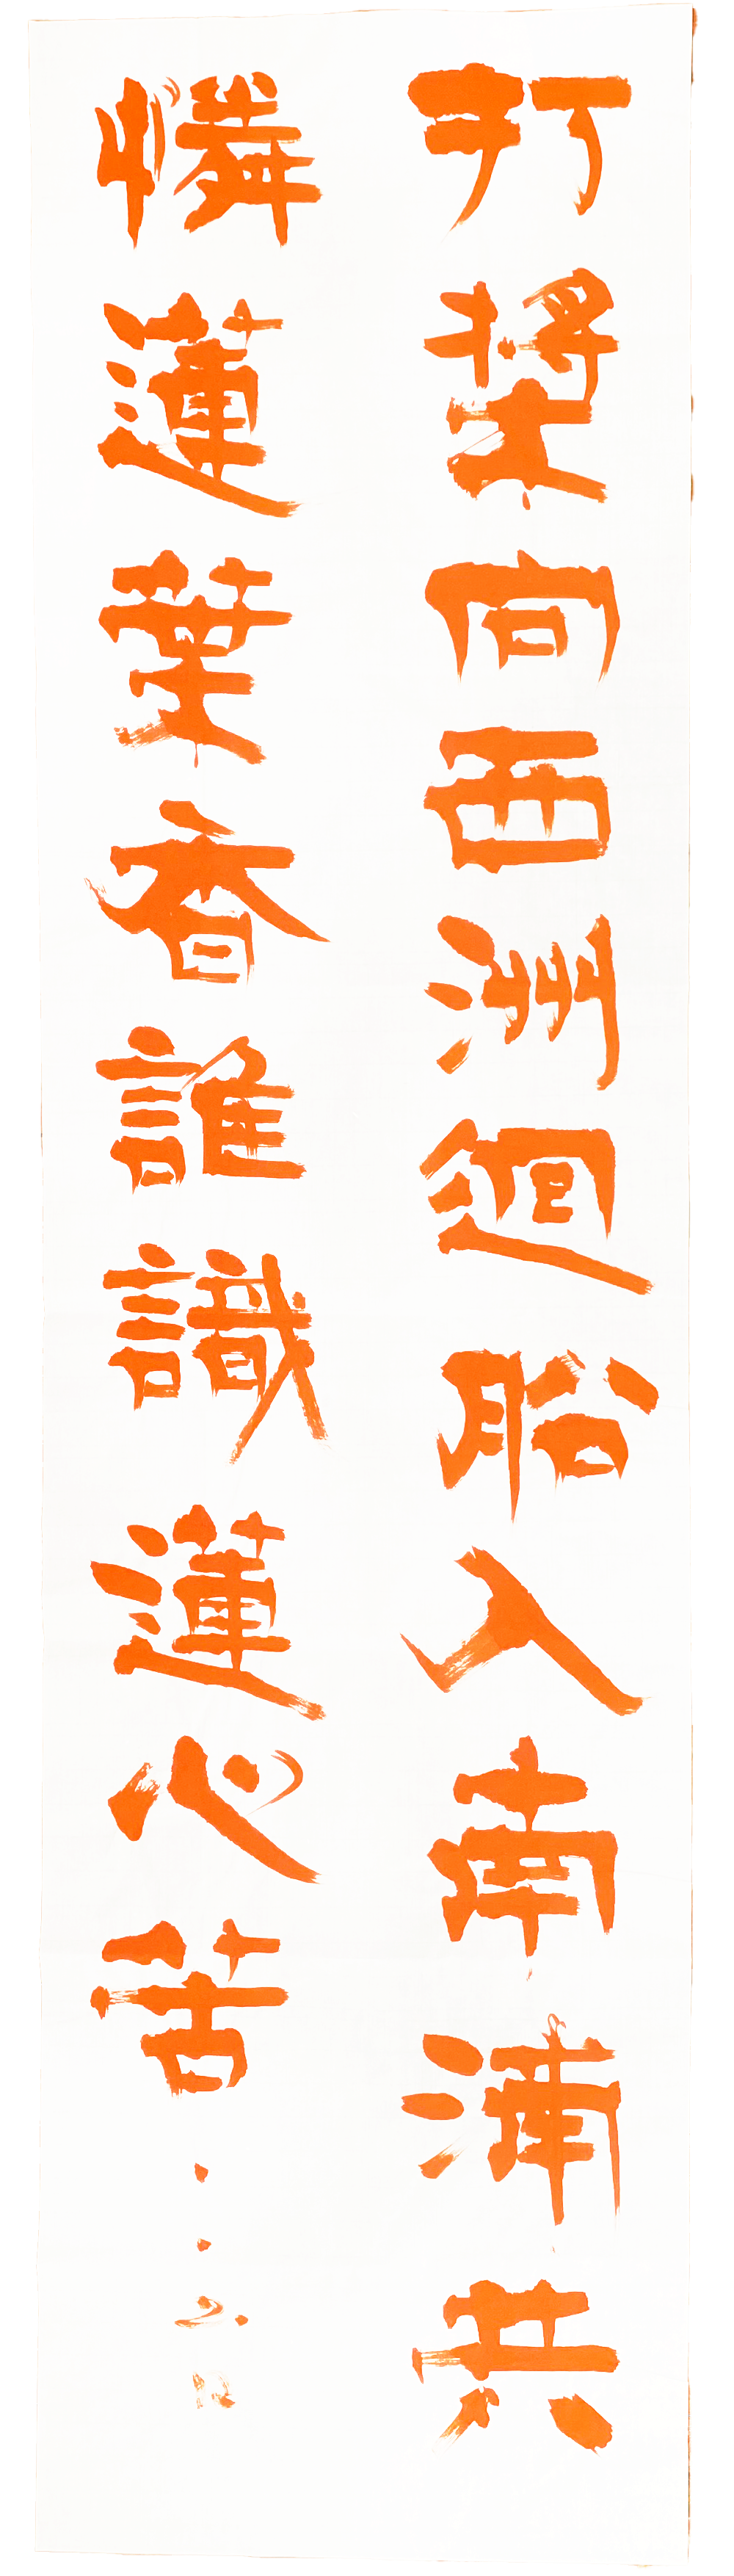 打槳向西洲迴船入南浦共
憐蓮葉香誰識蓮心苦